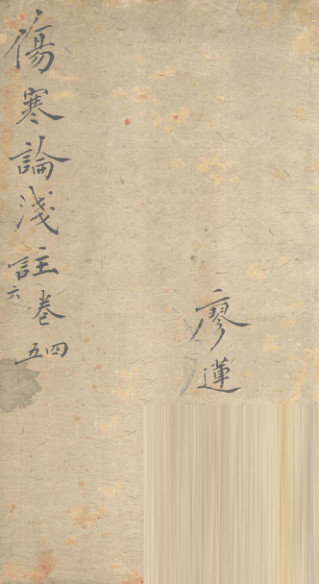 傷寒論淺註卷四五六
廖蓮